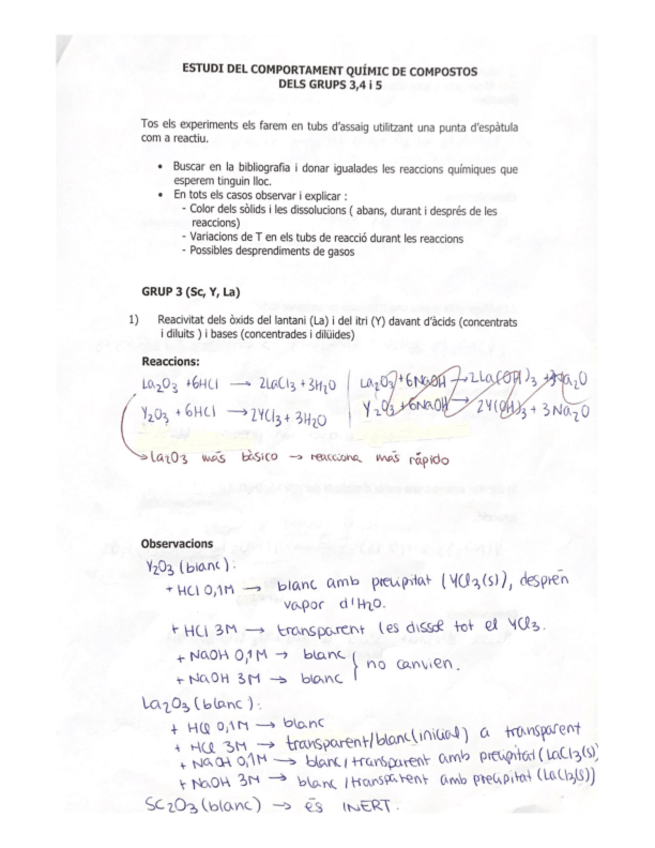 ESTUDI DEL COMPORTAMENT QUÍMIC DE COMPOSTOS
DELS GRUPS 3,4 i 5
Tos els experiments els farem en tubs d'assaig utilitzant una punta d'espàtula
com a reactiu.
• Buscar en la bibliografia i donar igualades les reaccions químiques que
esperem tinguin lloc.
• En tots els casos observar i explicar :
- Color dels sòlids i les dissolucions ( abans, durant i després de les
reaccions)
- Variacions de T en els tubs de reacció durant les reaccions
- Possibles desprendiments de gasos
GRUP 3 (Sc, Y, La)
1) Reacivitat dels òxids del lantani (La) i del itri (Y) davant d'àcids (concentrats
i diluits ) i bases (concentrades i dilüides)
Reaccions:
La2O3 + 6HCl → 2LaCl3 + 3H2O | La2O3 + 6NaOH → 2La(OH)3 + 3Na2O
Y2O3 + 6HCl → 2YCl3 + 3H2O | Y2O3 + 6NaOH → 2Y(OH)3 + 3Na2O
→ La2O3 más básico → reacciona más rápido
Observacions
Y2O3 (blanc):
+ HCl 0,1M → blanc amb precipitat (YCl3(s)), desprèn
vapor d'H2O.
+ HCl 3M → transparent (es dissol tot el YCl3.
+ NaOH 0,1M → blanc
+ NaOH 3M → blanc } no canvien.
La2O3 (blanc):
+ HCl 0,1M → blanc
+ HCl 3M → transparent/blanc (inicial) a transparent
+ NaOH 0,1M → blanc/transparent amb precipitat (LaCl3(s)
+ NaOH 3M → blanc/transparent amb precipitat (LaCl3(s))
Sc2O3 (blanc) → és INERT.